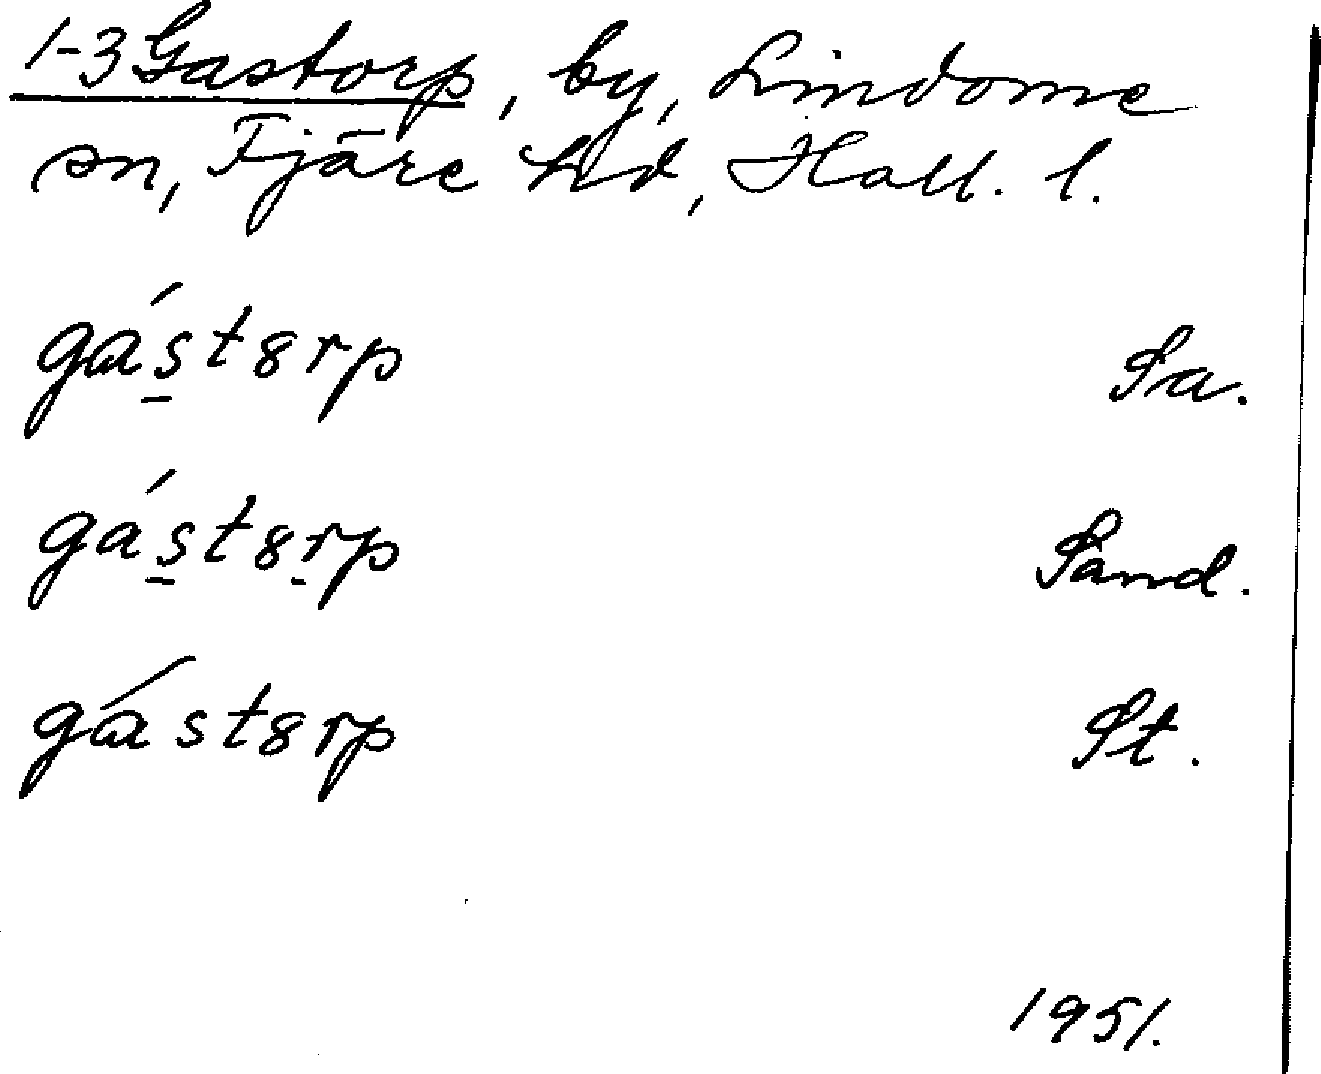 1-3 Gastorp, by, Lindome
sn, Fjäre hd, Hall. l.
gás̱t8rp Sa.
gás̱t8ṟp Sand.
gást8rp St.
1951.